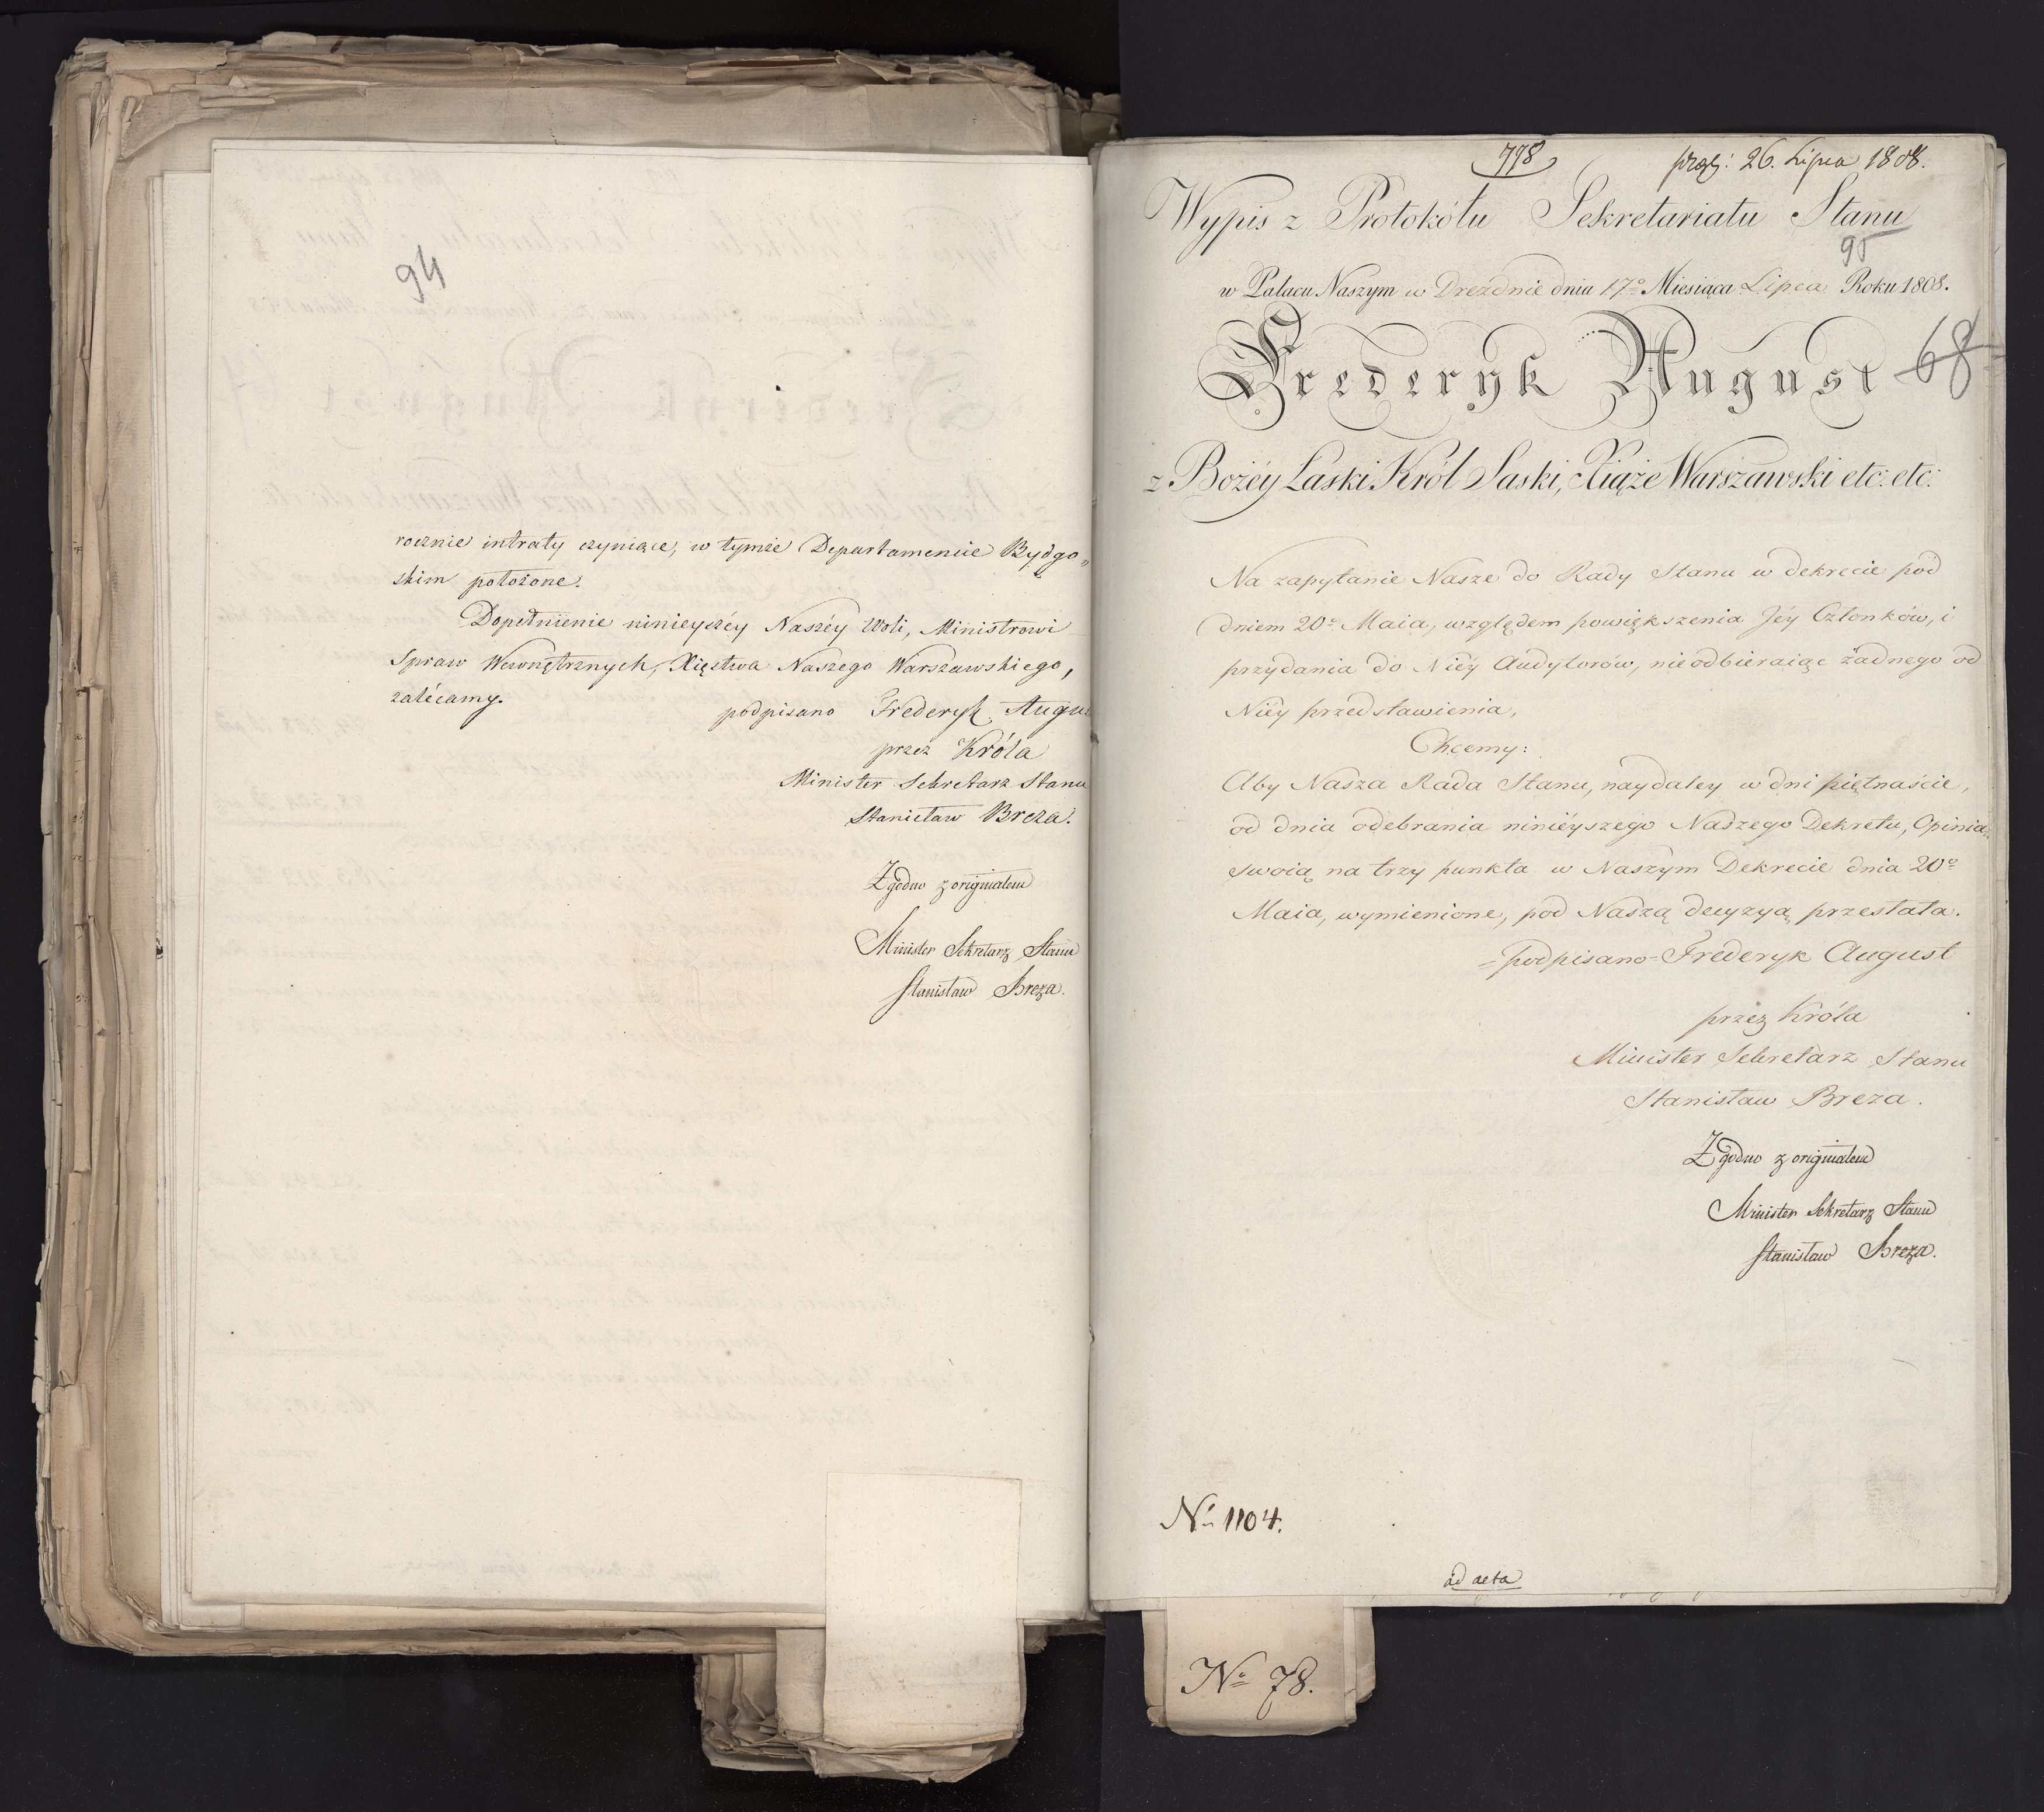 94
rocznie intraty czyniące, w tymże Departamencie Bydgo„
skim położone.
Dopełnienie ninieyszéy Naszéy Woli, Ministrowi
Spraw Wewnętrznych, Xięstwa Naszego Warszawskiego,
zalécamy.
podpisano Frederyk Augu
przez Króla
Minister Sekretarz Stanu
Stanisław Breza.
Zgodno z originałem
Minister Sekretarz Stanu
Stanisław Breza.
778
26. Lipca 1808.
Wypis z Protokółu Sekretariatu Stanu
95
w Pałacu Naszym w Dreźdnie dnia 17º Miesiąca Lipca Roku 1808.
Frederyk August
68
z Bożéy Łaski Król Saski, Xiąże Warszawski etc: etc:
Na zapytanie Nasze do Rady Stanu w dekrecie pod
dniem 20º Maia, względem powiększenia Jéy Członków, i
przydania do Niéy Audytorów, nieodbieraiąc żadnego od
Niéy przedstawienia,
Chcemy:
Aby Nasza Rada Stanu, naydaley w dni piętnaście,
od dnia odebrania niniéyszego Naszego Dekretu, Opinia
swoią na trzy punkta w Naszym Dekrecie dnia 20º
Maia, wymienione, pod Naszą decyzyą przesłała.
=podpisano= Frederyk August
przez Króla
Minister Sekretarz Stanu
Stanisław Breza.
Zgodno z originałem
Minister Sekretarz Stanu
Stanisław Breza.
Nº 1104.
ad acta
Nº 78.